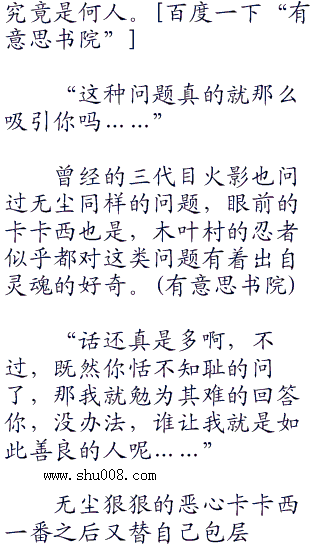 究竟是何人。[百度一下“有
意思书院”]
“这种问题真的就那么
吸引你吗……”
曾经的三代目火影也问
过无尘同样的问题，眼前的
卡卡西也是，木叶村的忍者
似乎都对这类问题有着出自
灵魂的好奇。(有意思书院)
“话还真是多啊，不
过，既然你恬不知耻的问
了，那我就勉为其难的回答
你，没办法，谁让我就是如
此善良的人呢……”
www.shu008.com
无尘狠狠的恶心卡卡西
一番之后又替自己包层